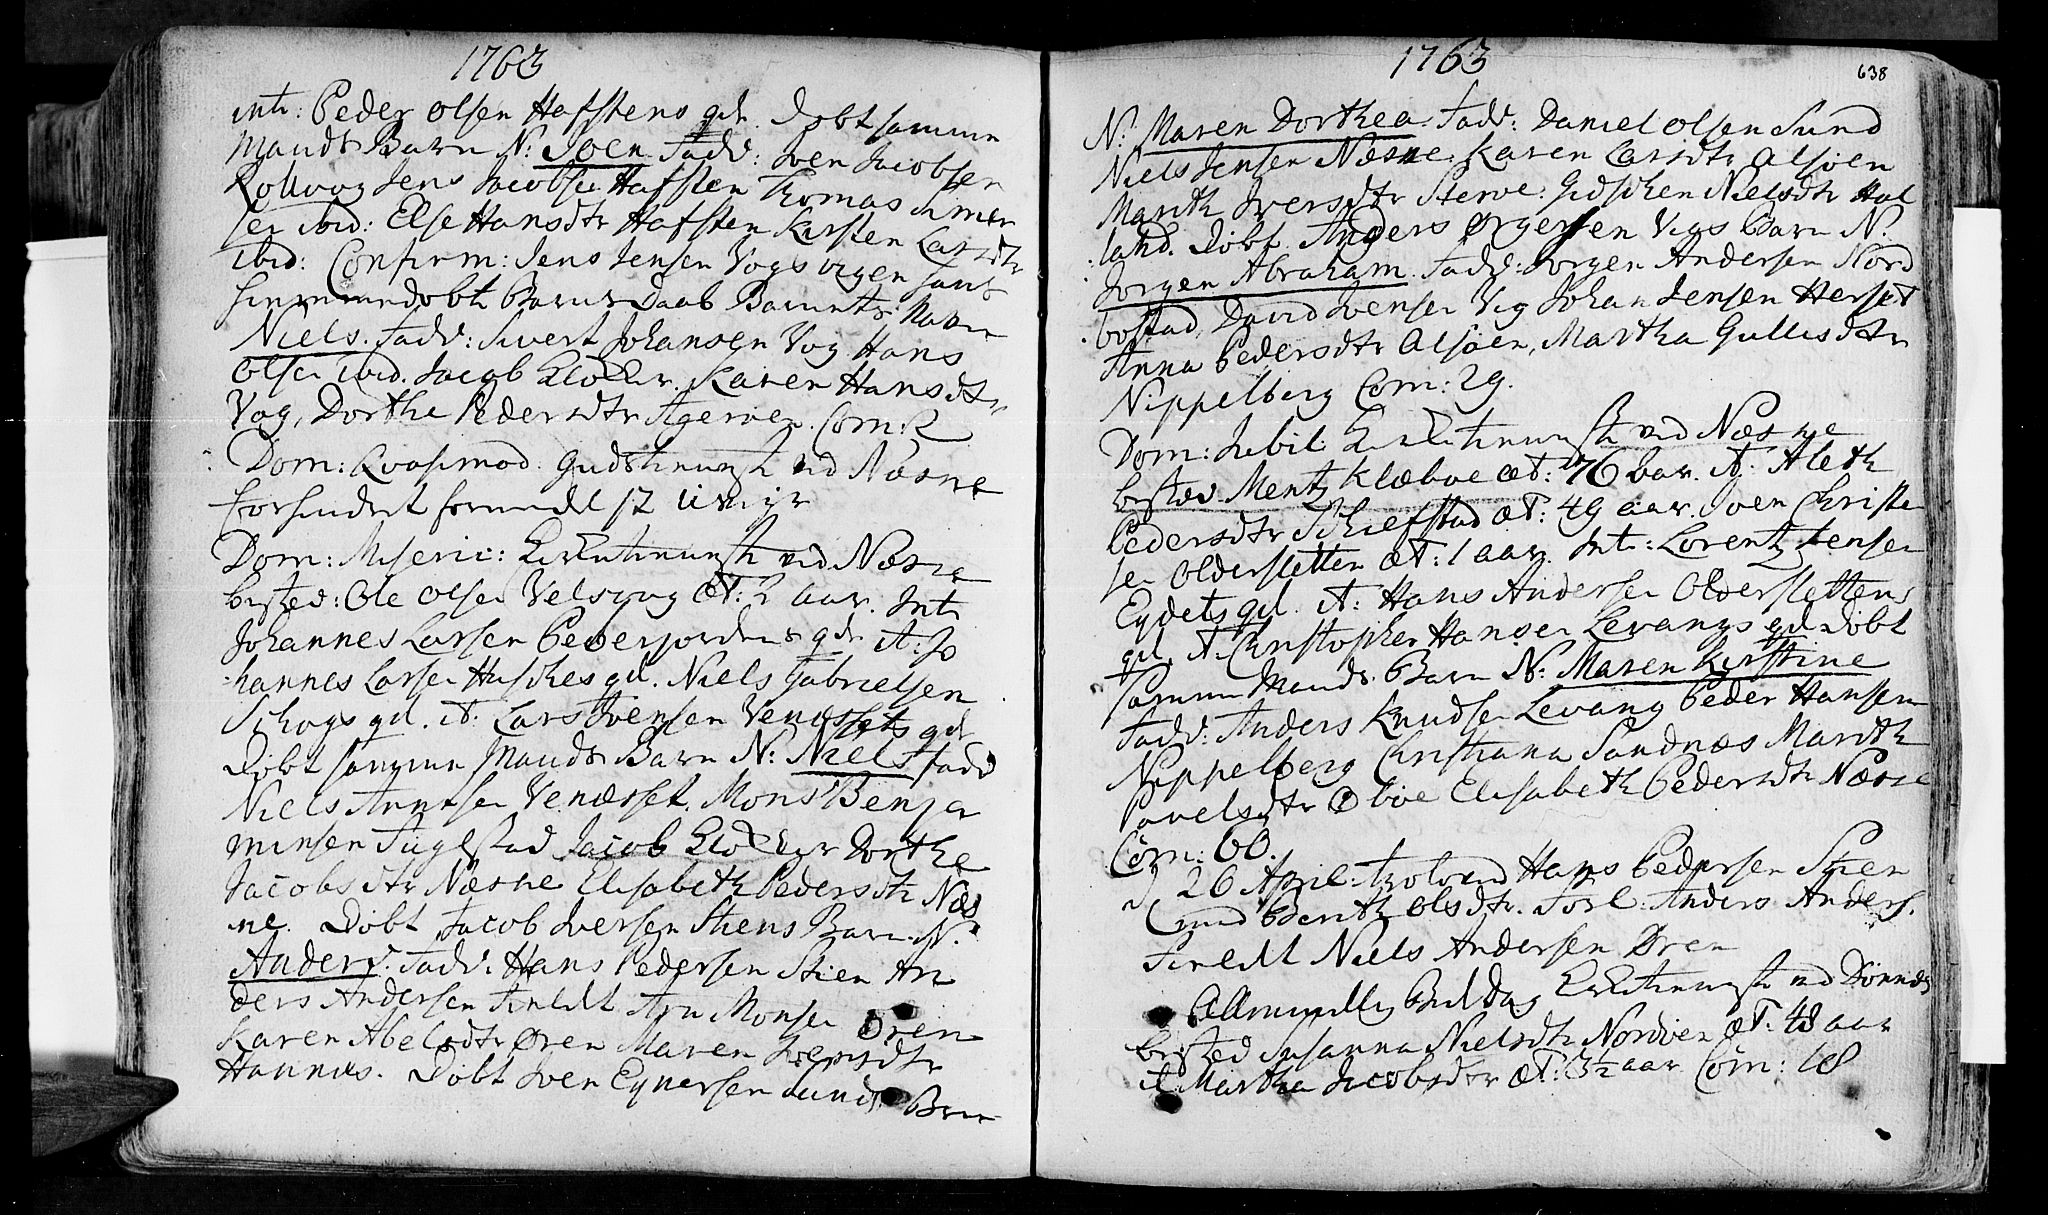 1763
intr: Peder Olsen Hafstens qd. Døbt samme
Mands Barn N: Joen Fadd: Iven Jacobsen
Kollvog Jens Jacobse Hafsten Thomas Simen
sen ibid: Else Hansdtr Hafsten Kirsten Larsdtr
ibid: Confirm: Jens Jensen Vogs
hiemmedøbte Barns Daab Barnets Navn
Niels. Fadd: Sivert Johansen Vog Hans
Olsen ibid. Jacob Klokker. Karen Hansdtr
Vog, Dorthe Pedersdtr Ageroen. Com: 2
Dom: Qvasimod: Gudstienniste ved Næsne
forhindret formedelst Uveyr
Dom: Miseric: Kirketienniste ved Næsne
bested: Ole Olsen Velsvog Æt: 2 aar. Intr
Johannes Larsen qd. it: Jo
hannes Larsen Huskes qd. Niels Gabrielsen
Schogs qd. it: Lars Ivensen Venæssets qd
Døbt samme Mands Barn N: Niels Fadd
Niels Venæsset. Mons Benja
minsen Fuglstad Jacob Klokker Dorthe
Jacobsdtr Næsne Elisabeth Pedersdtr Næs
ne. Døbt Jacob Iversen Stiens Barn N.
Anders. Fadd: Hans Pedersen Stien An
ders Andersen Arn Monsen Øren
Karen Abelsdtr Øren Maren
Hannæs. Døbt Iven Eynersen Sunds Barn
1763
638
N: Maren Dorthea. Fadd: Daniel Olsen Sund
Niels Jensen Næsne. Karen Larsdtr Alsøen
Marith Iversdtr Gidschen Nielsdtr Hal
land. Døbt Anders Ørgersen Vigs Barn N.
Jørgen Abraham. Fadd: Jørgen Andersen Nord
bostad, David Ivensen Vig Johan Jensen Herset
Anna Pedersdtr Alsøen, Martha Gullisdtr
Nippelberg Com: 29.
Dom: Jubil: Kirketienniste ved Næsne
bested Mentz Klæboe æt: 76 aar. it. Aleth
Pedersdtr Schiefstad Æt: 49 aar. Iven Christen
sen Oldersletten Æt: 1 aar. Int: Lorentz Jensen
Eydets qd. it: Hans Andersen Olderslettens
qd. it. Christopher Hansen Levangs qd. Døbt
samme Mands Barn N: Maren Kirstine
Fadd: Anders Knudsen Levang Peder Hansen
Nippelberg Christiana Sandnæs Marith
Povelsdtr Elisabeth Pedersdtr Næsne
Com: 60.
d 26 April: trolovd Hans Pedersen Stien
med Berith Olsdtr. Forl: Anders Anders.
Niels Andersen Øren
Allmindelig Bededag Kirketienniste ved Dønnæs
bested Susanna Nielsdtr Nordvien æt: 48 aar
it Martha Jacobsdtr Æt: 3½ aar Com: 18